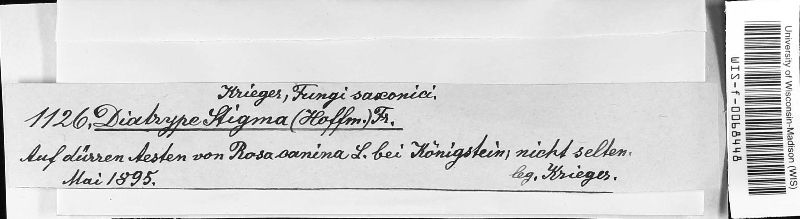 Krieger, Fungi saxonici.
1126. Diatrype Stigma (Hoffm.) Fr.
Auf dürren Aesten von Rosa canina L. bei Königstein, nicht selten.
Mai 1895.
leg. Krieger.
University of Wisconsin-Madison (WIS)
WIS-f-0068448